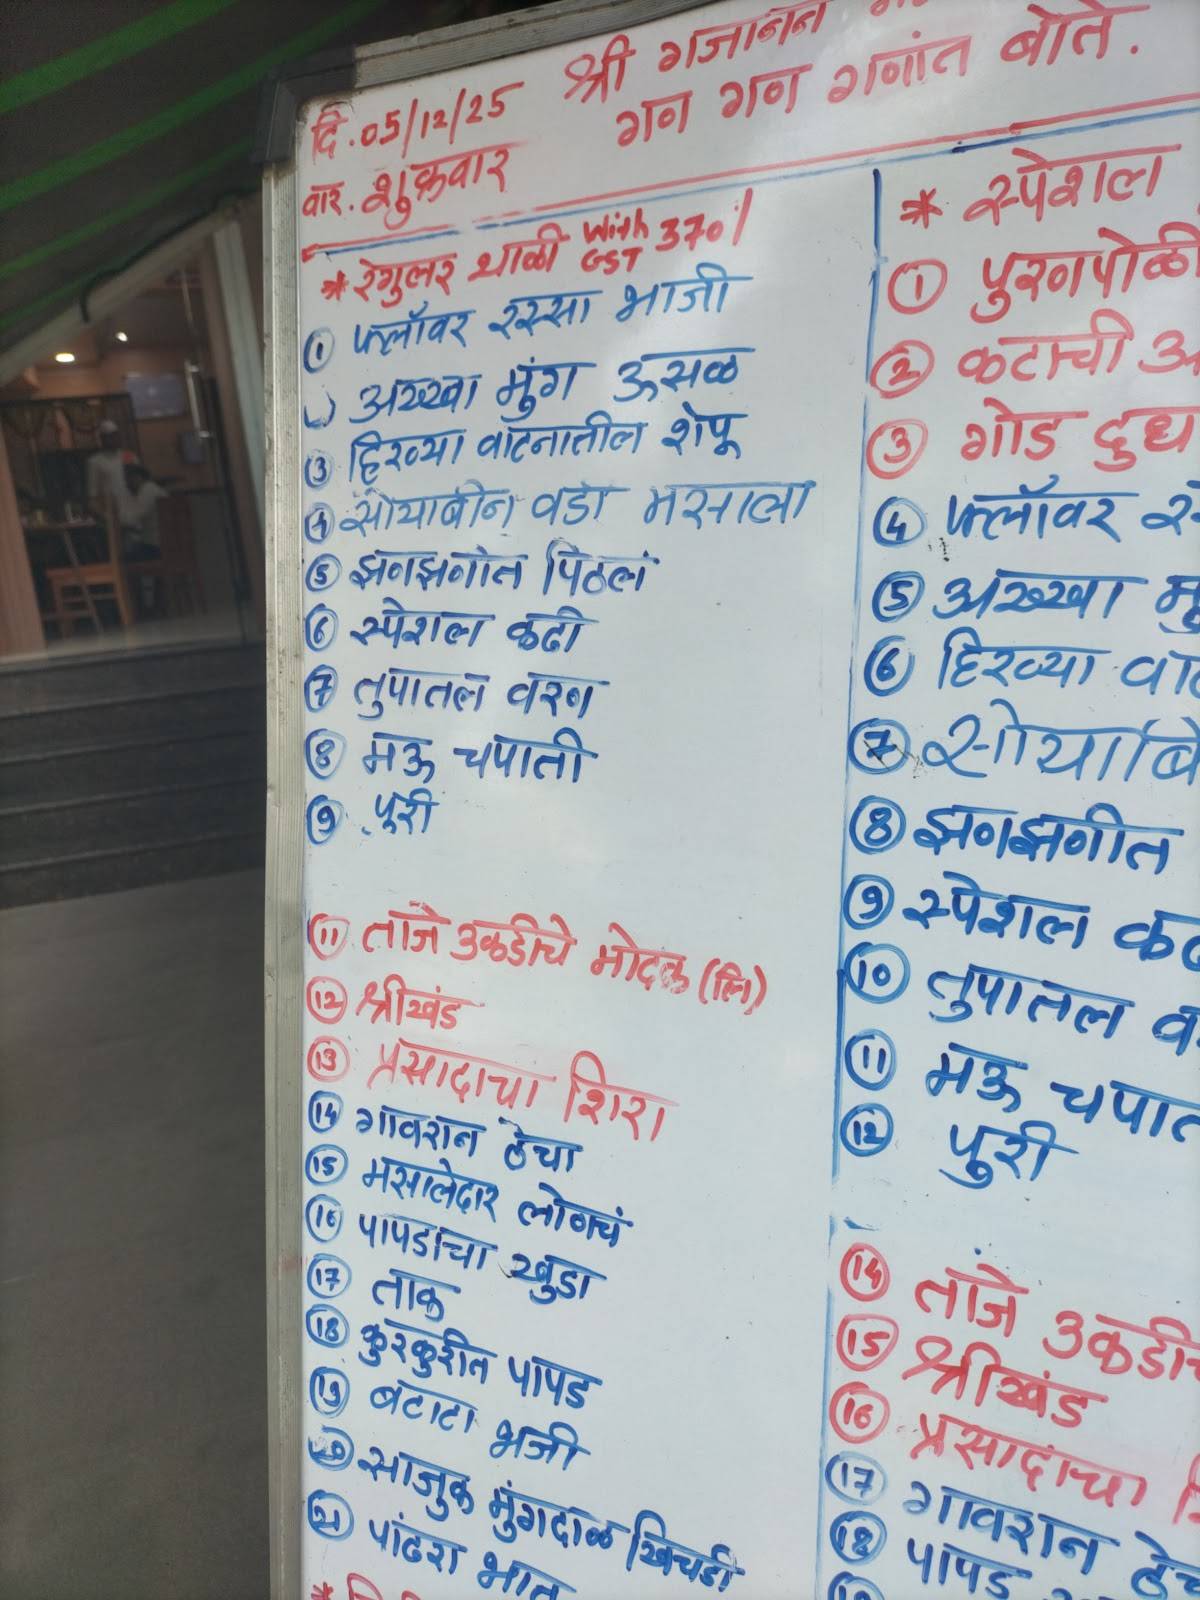 श्री गजानन
गण गण गणांत बोते.
दि. 05/12/25
वार. शुक्रवार
* रेगुलर थाळी With GST 370/
① फ्लॉवर रस्सा भाजी
अख्खा मुंग ऊसळ
③ हिरव्या वाटनातील शेपू
④ सोयाबीन वडा मसाला
⑤ झणझणीत पिठलं
⑥ स्पेशल कढी
⑦ तुपातल वरण
⑧ मऊ चपाती
⑨ पूरी
⑪ ताजे उकडीचे मोदक (लि)
⑫ श्रीखंड
⑬ प्रसादाचा शिरा
⑭ गावरान ठेचा
⑮ मसालेदार लोणचं
⑯ पापडाचा खुडा
⑰ ताक
⑱ कुरकुरीत पापड
⑲ बटाटा भजी
⑳ साजुक मुंगदाळ खिचडी
㉑ पांढरा भात
* स्पेशल
① पुरणपोळी
② कटाची
③ गोड दुध
④ फ्लॉवर
⑤ अख्खा
⑥ हिरव्या
⑦ सोयाबि
⑧ झणझणीत
⑨ स्पेशल
⑩ तुपातल
⑪ मऊ चपात
⑫ पुरी
⑭ ताजे उकडीच
⑮ श्रीखंड
⑯ प्रसादाचा
⑰ गावरान ठेच
⑱ पापड